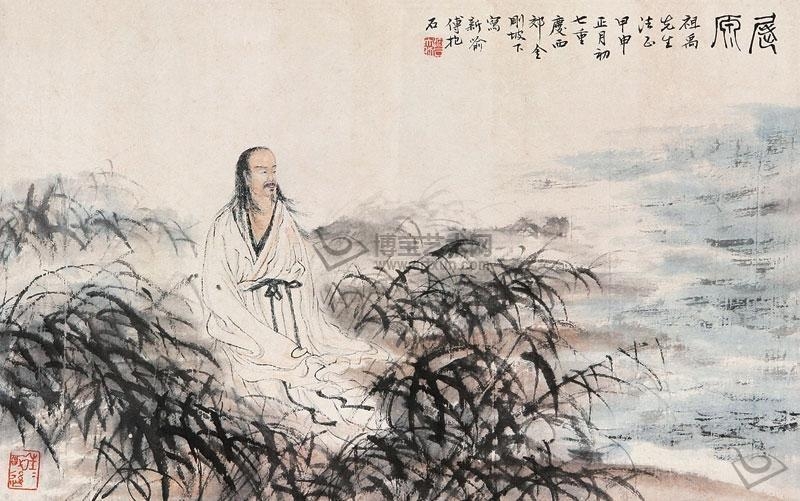 屈原
祖禹
先生
法正
甲申
正月初
七重
慶西
郊金
剛坡下
寫
新喻
傅抱
石
博宝艺术网